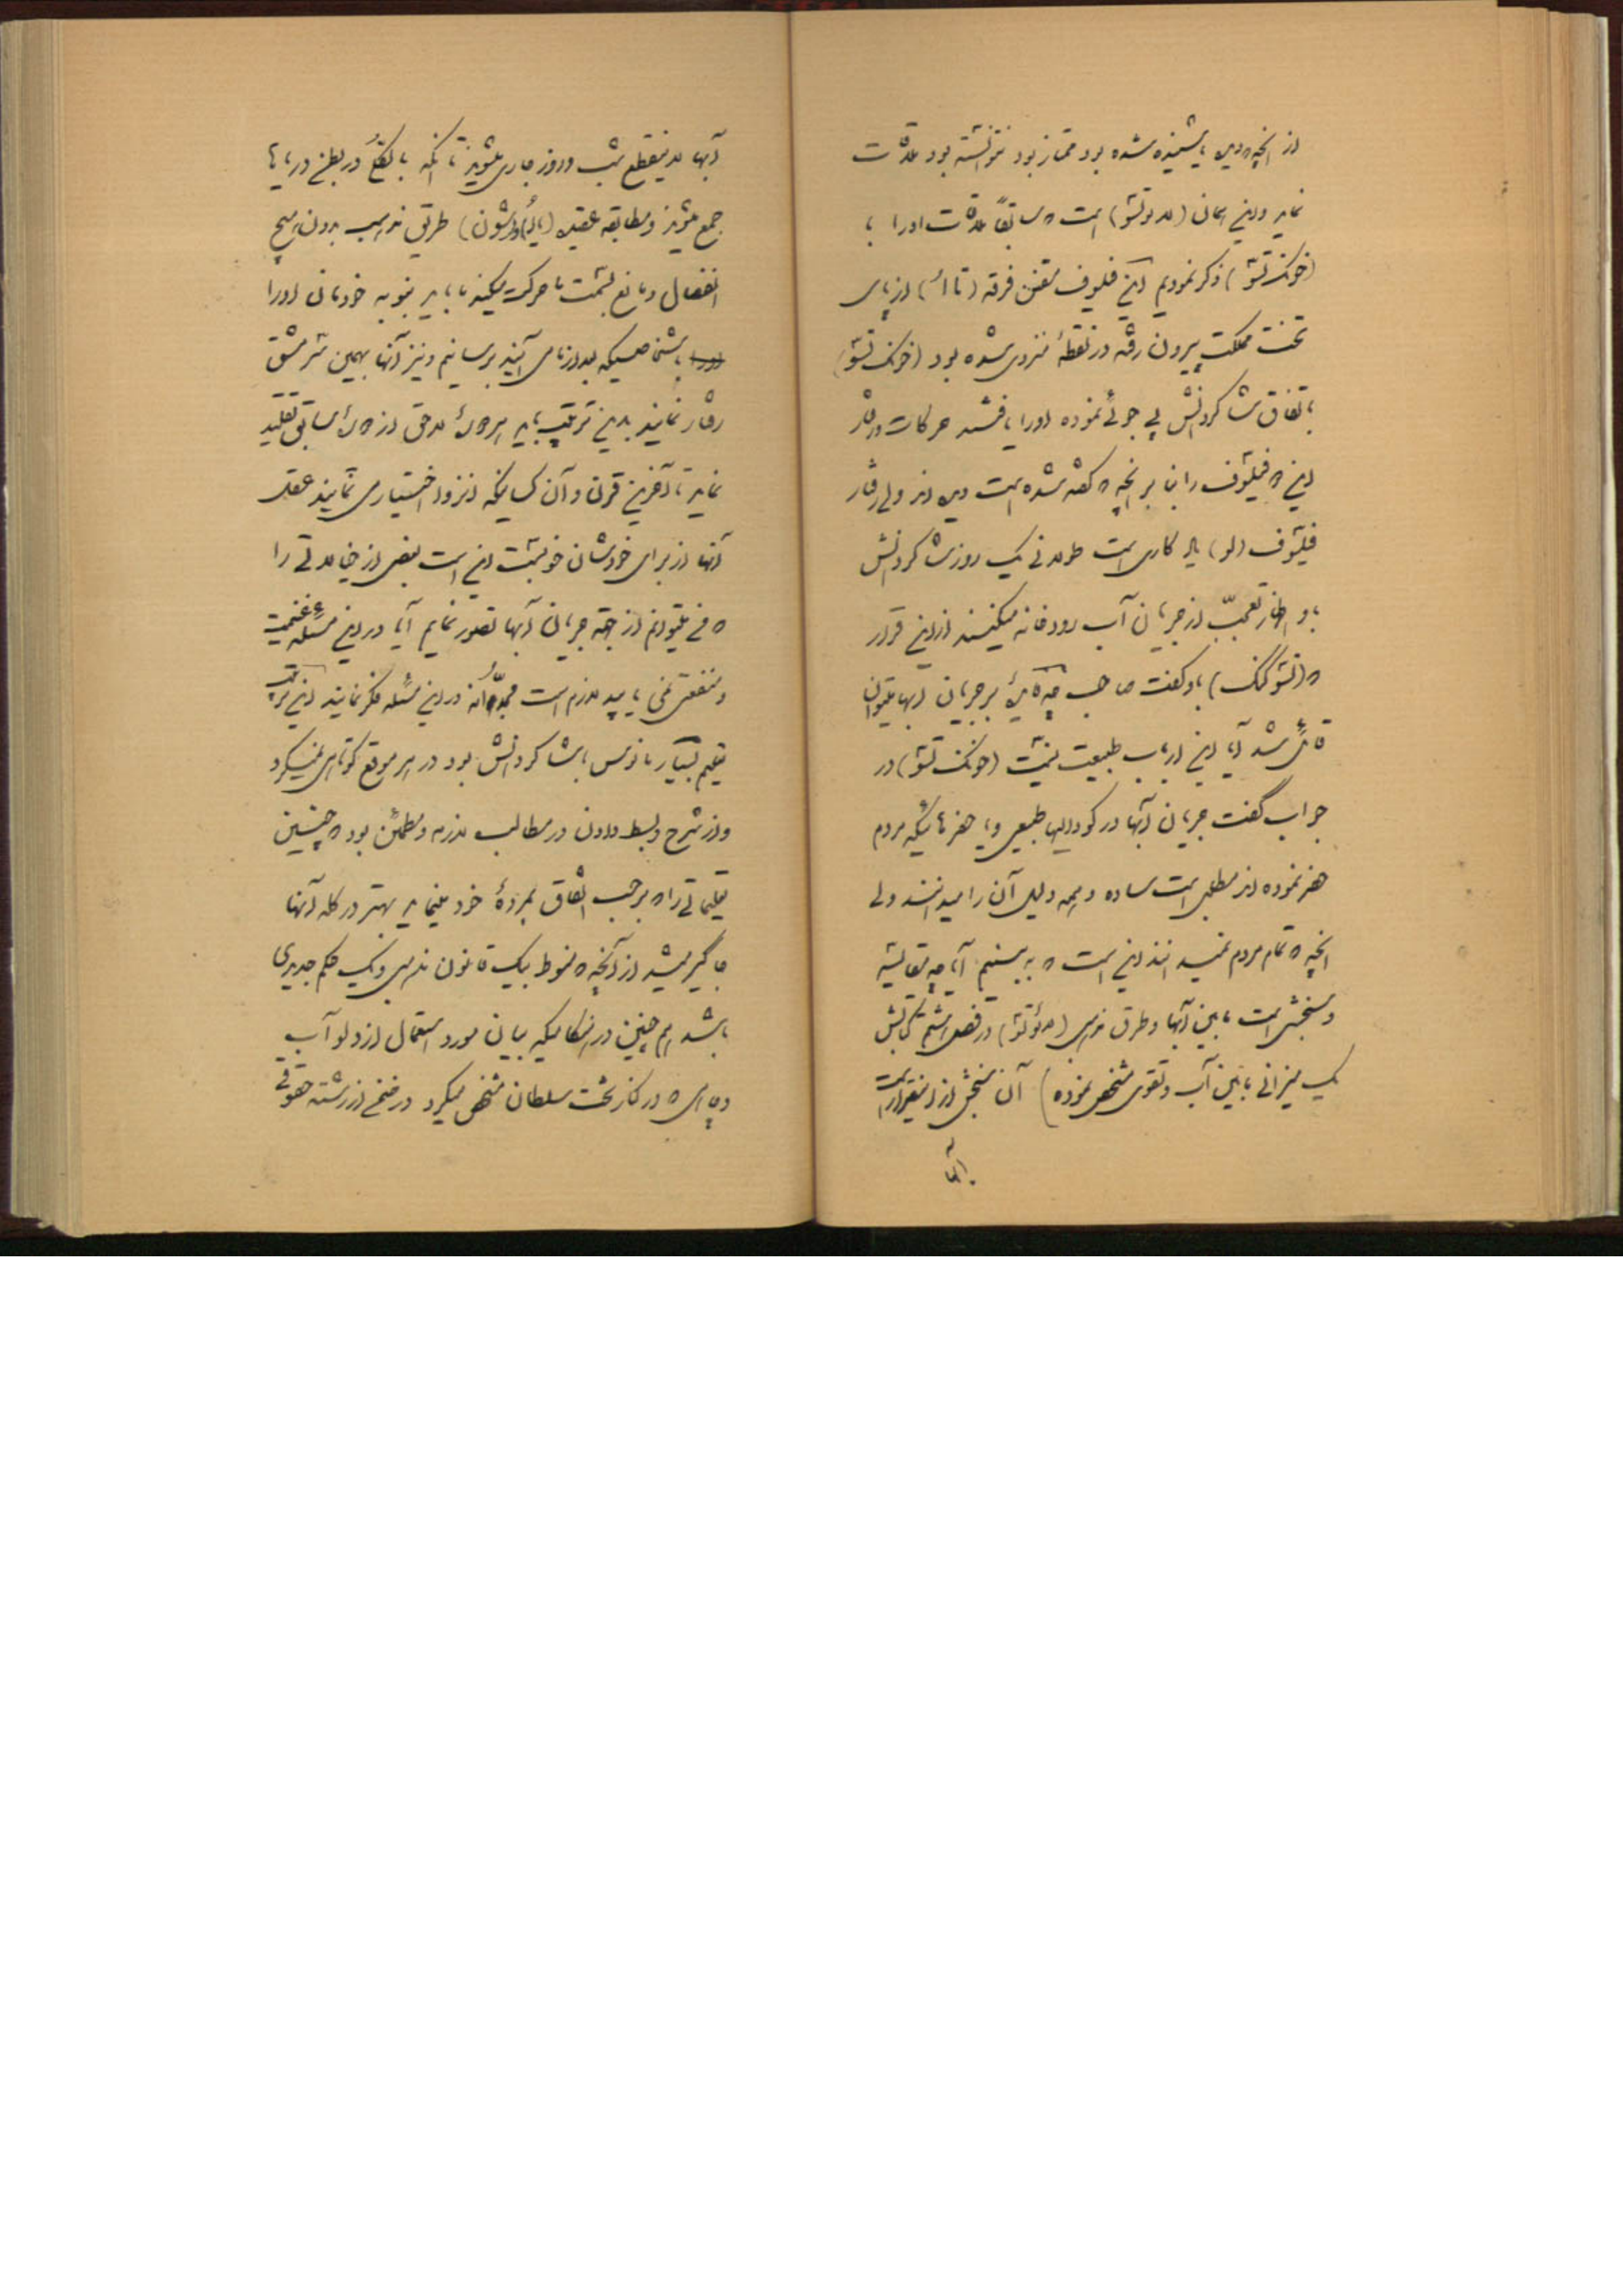 از آنچه که دیده یا شنیده شده بود ممتاز بود نتوانسته بود ملاقات
نماید و این همان (لائوتشو) است که سابقاً ملاقات او را با
(خونک تشو) ذکر نمودیم این فیلسوف مقنن فرقه (تاائو) از پای
تخت مملکت بیرون رفته در نقطهٔ منزوی شده بود (خونک تشو)
باتفاق شاگردانش پی جوئی نموده او را یافتند حرکات و رفتار
این فیلسوف را بنا بر آنچه که گفته شده است دیدند ولی رفتار
فیلسوف (لو) کاری است طولانی یک روز شاگردانش
با و اظهار تعجب از جریان آب رودخانه میکنند از این قرار
که (تشو کنک) باو گفت صاحب چه تأثیری بر جریان آبها میتوان
قائل شد آیا این از باب طبیعت نیست (خونک تشو) در
جواب گفت جریان آبها در گودالهای طبیعی و یا حفرهائیکه مردم
حفر نموده‌اند مطلبی است ساده و همه دلیل آن را میدانند ولی
آنچه که تمام مردم نمیدانند این است که به بینیم آیا چه مقایسه
و سنجشی است مابین آبها و طرق مذهبی (لائوتشو) در فصل هشتم کتابش
یک میزانی مابین آب و تقوی مشخص نموده) آن سنجش از اینقرار است
آبها
آبها لاینقطع شب و روز جاری میشوند تا آنکه بالقطع در بطن دریاها
جمع میشوند و مطابقه عقیده (یائو و شون) طریق مذهب بدون هیچ
انفصال و مانع بسمت ما حرکت میکند ما باید بنوبه خودمان او را
باشخاصیکه بعد از ما می‌آیند برسانیم و نیز آنها بهمین سرمشق
رفتار نمایند بدین ترتیب باید هر لاحق از سابق تقلید
نماید تا آخرین قرن و آن کسانیکه انزوا اختیار می‌نمایند عقل
آنها از برای خودشان خوبست این است بعضی از خیالاتی را
که می‌توانم از جهت جریان آبها تصور نمایم آیا در این مسئله غنیمت
و منفعتی نمی‌یابید لازم است مجدانه در این مسئله فکر نمائید این ترتیب
تعلیم بسیار مأنوس باشاگردانش بود در هر موقع کوتاهی نمیکرد
و از شرح و بسط دادن در مطالب لازمه و مطمئن بود که چنین
تعلیماتی را که بر حسب اتفاق بمردهٔ خود مینماید بهتر در کله آنها
جاگیر میشد از آنچه که منوط بیک قانون مذهبی و یک حکم جدیدی
باشد هم چنین در هنگامیکه بیان مورد استعمال از دلو آب
و پای که در کنار تخت سلطان مشخص میکرد در ضمن از رشته حقوقی